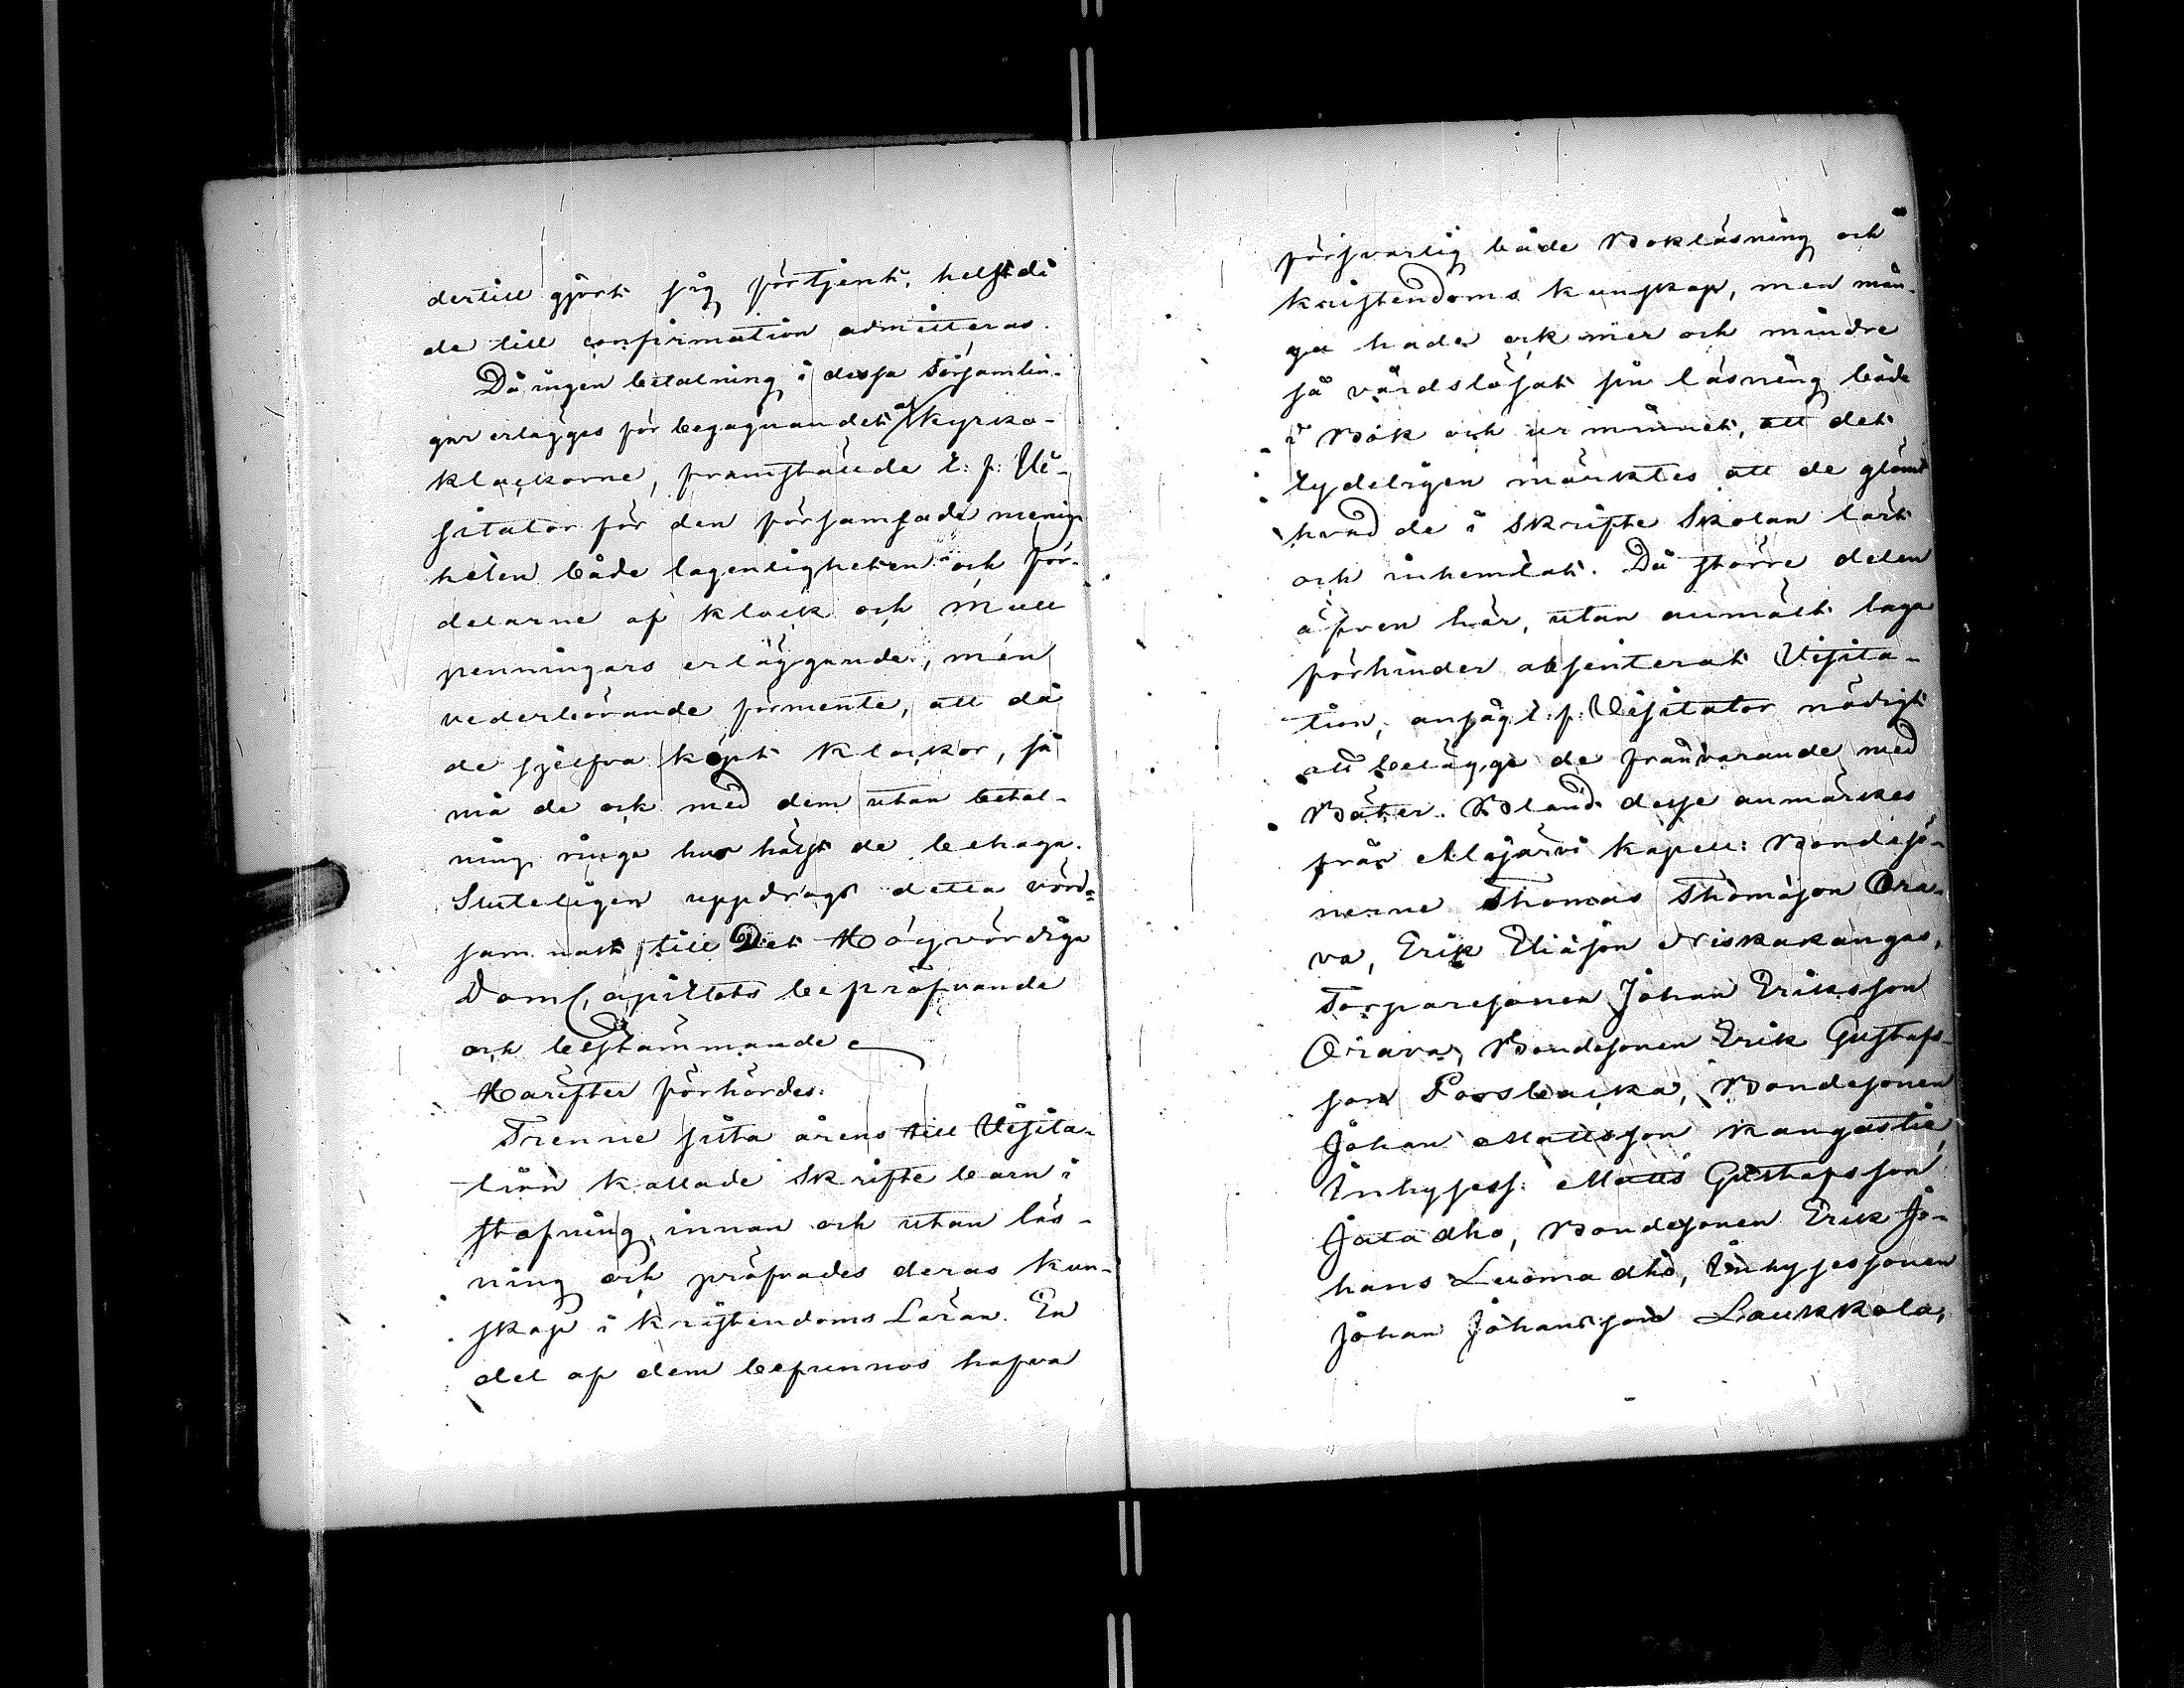 dertill gjort sig förtjent, helst då
de till confirmation admitteras.
Då ingen betalning i dessa Församlin-
gar erlägges för begagnandet af Kyrko-
klockorne, framstälde t. f. Vi-
sitator för den församlade menig
heten både lagenligheten och för-
delarne af klock och mull
penningars erläggande, men
vederbörande förmente, att då
de sjelfva köpt klockor, så
må de ock med dem utan betal-
ning ringa hur hälst de behaga.
Sluteligen uppdrogs detta vörd-
samnast till Det Högvördiga
DomCapitlets bepröfvande
och bestämmande
Härefter förhördes:
Trenne sista årens till Visita-
tion kallade Skriftebarn i
stafning, innan och utan läs-
ning och pröfvades deras kun-
skap i kristendoms Läran. En
del af dem befunnos hafva
försvarlig både Bokläsning och
kristendoms kunskap, men mån-
ga hade ock mer och mindre
så vårdslösat sin läsning både
i Bok och ur minnet, att det
tydeligen märktes att de glömt
hvad de i Skrifte Skolan lärt
och inhemtat. Då större delen
äfven här, utan anmält laga
förhinder absenterat Visita-
tion, ansåg t. f. Visitator nödigt
att belägga de frånvarande med
Böter. Bland desse anmärkes
från Alajärvi kapell: Bondesö-
nerne Thomas Thomasson Ora-
va, Erik Eliasson Niskakangas,
Torparesonen Johan Eriksson
Orava, Bondesonen Erik Gustafs-
son Poosbacka, Bondesonen
Johan Mattsson Kangastie,
Inhysess. Matts Gustafsson
Jataaho, Bondesonen Erik Jo-
hans Luomaaho, Inhysessonen
Johan Johansson Laukkola,